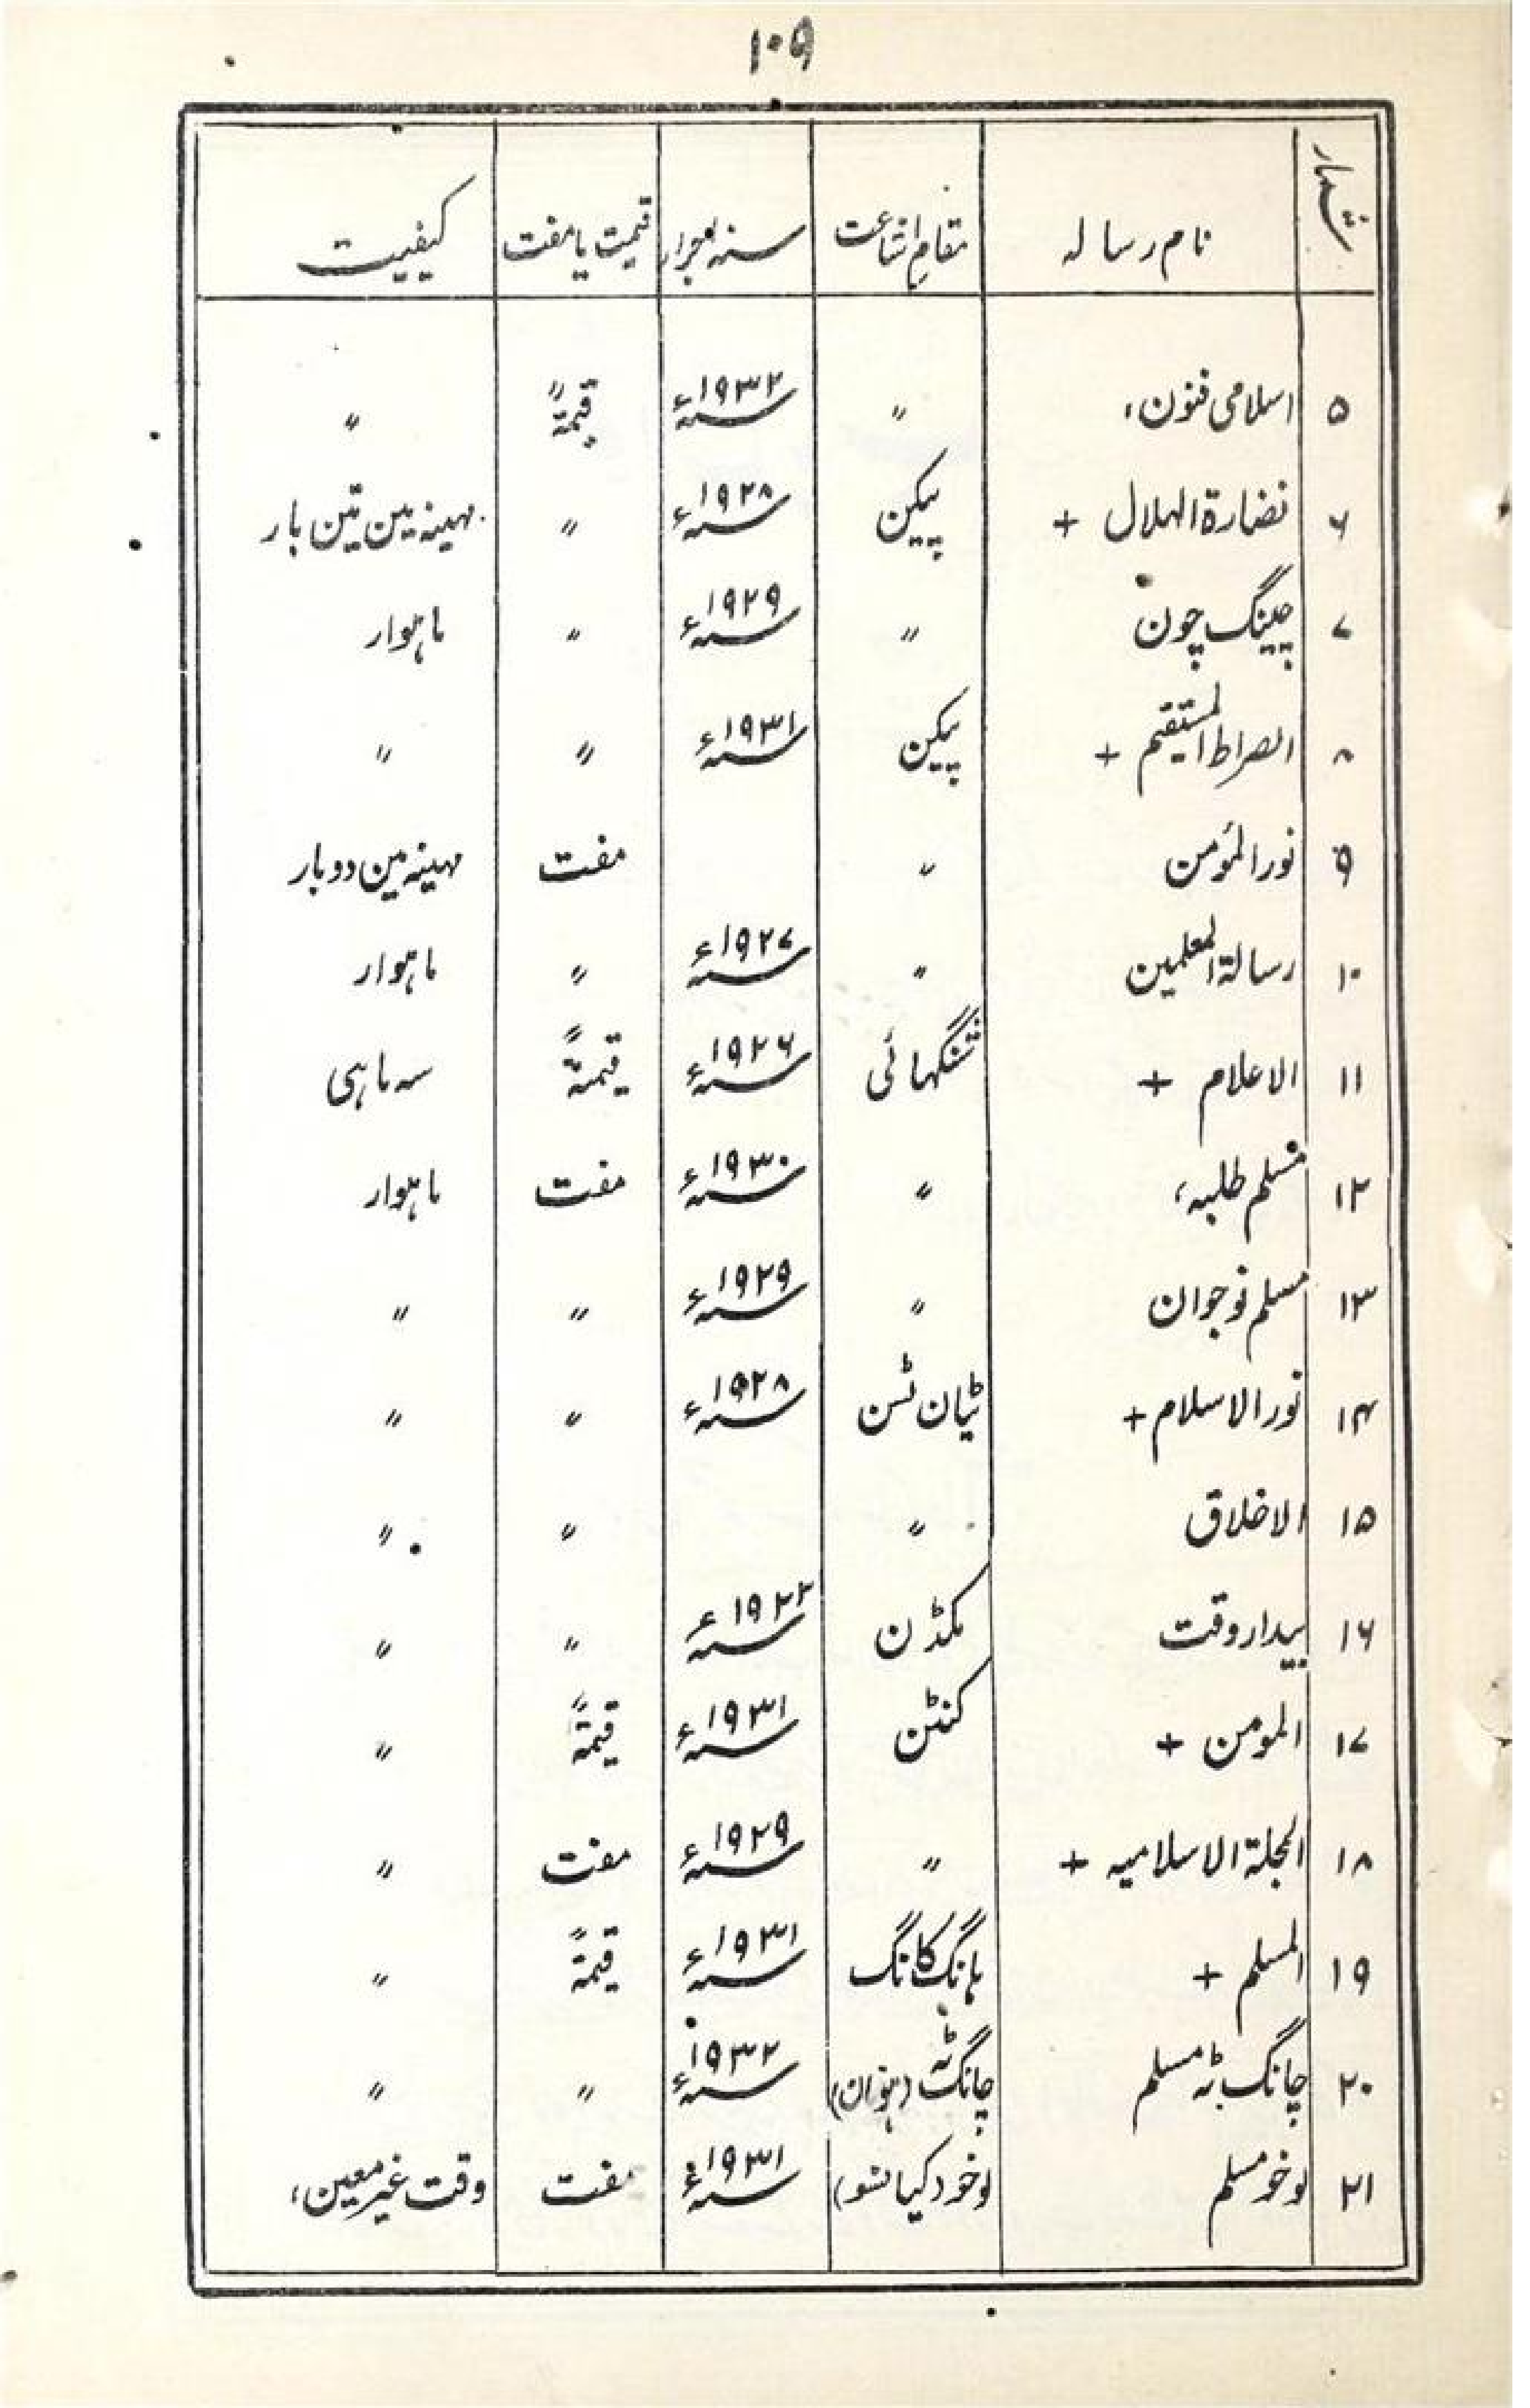 ۱۰۹
نمبر شمار | نام رسالہ | مقام اشاعت | سنہ اجراء | قیمت یا مفت | کیفیت
۵ | اسلامی فنون، | " | ۱۹۳۲ء | قیمۃً | "
۶ | نضارۃ الہلال + | پیکن | ۱۹۲۸ء | " | مہینہ مین تین بار
۷ | چینگ چون | " | ۱۹۲۹ء | " | ماہوار
۸ | الصراط المستقیم + | پیکن | ۱۹۳۱ء | " | "
۹ | نور المؤمن | " | | مفت | مہینہ مین دو بار
۱۰ | رسالۃ المعلمین | " | ۱۹۲۷ء | " | ماہوار
۱۱ | الاعلام + | شنگہائی | ۱۹۲۶ء | قیمۃً | سہ ماہی
۱۲ | مسلم طلبہ، | " | ۱۹۳۰ء | مفت | ماہوار
۱۳ | مسلم نوجوان | " | ۱۹۲۹ء | " | "
۱۴ | نور الاسلام + | ٹیان ٹسن | ۱۹۲۸ء | " | "
۱۵ | الاخلاق | " | | " | "
۱۶ | بیدار وقت | مکڈن | ۱۹۲۲ء | " | "
۱۷ | المومن + | کنٹن | ۱۹۳۱ء | قیمۃً | "
۱۸ | المجلۃ الاسلامیہ + | " | ۱۹۲۹ء | مفت | "
۱۹ | المسلم + | ہانگ کانگ | ۱۹۳۱ء | قیمۃً | "
۲۰ | چانگ ٹہ مسلم | چانگ ٹہ (ہونان) | ۱۹۳۲ء | " | "
۲۱ | لوخو مسلم | لوخو (کیانسو) | ۱۹۳۱ء | مفت | وقت غیر معین،